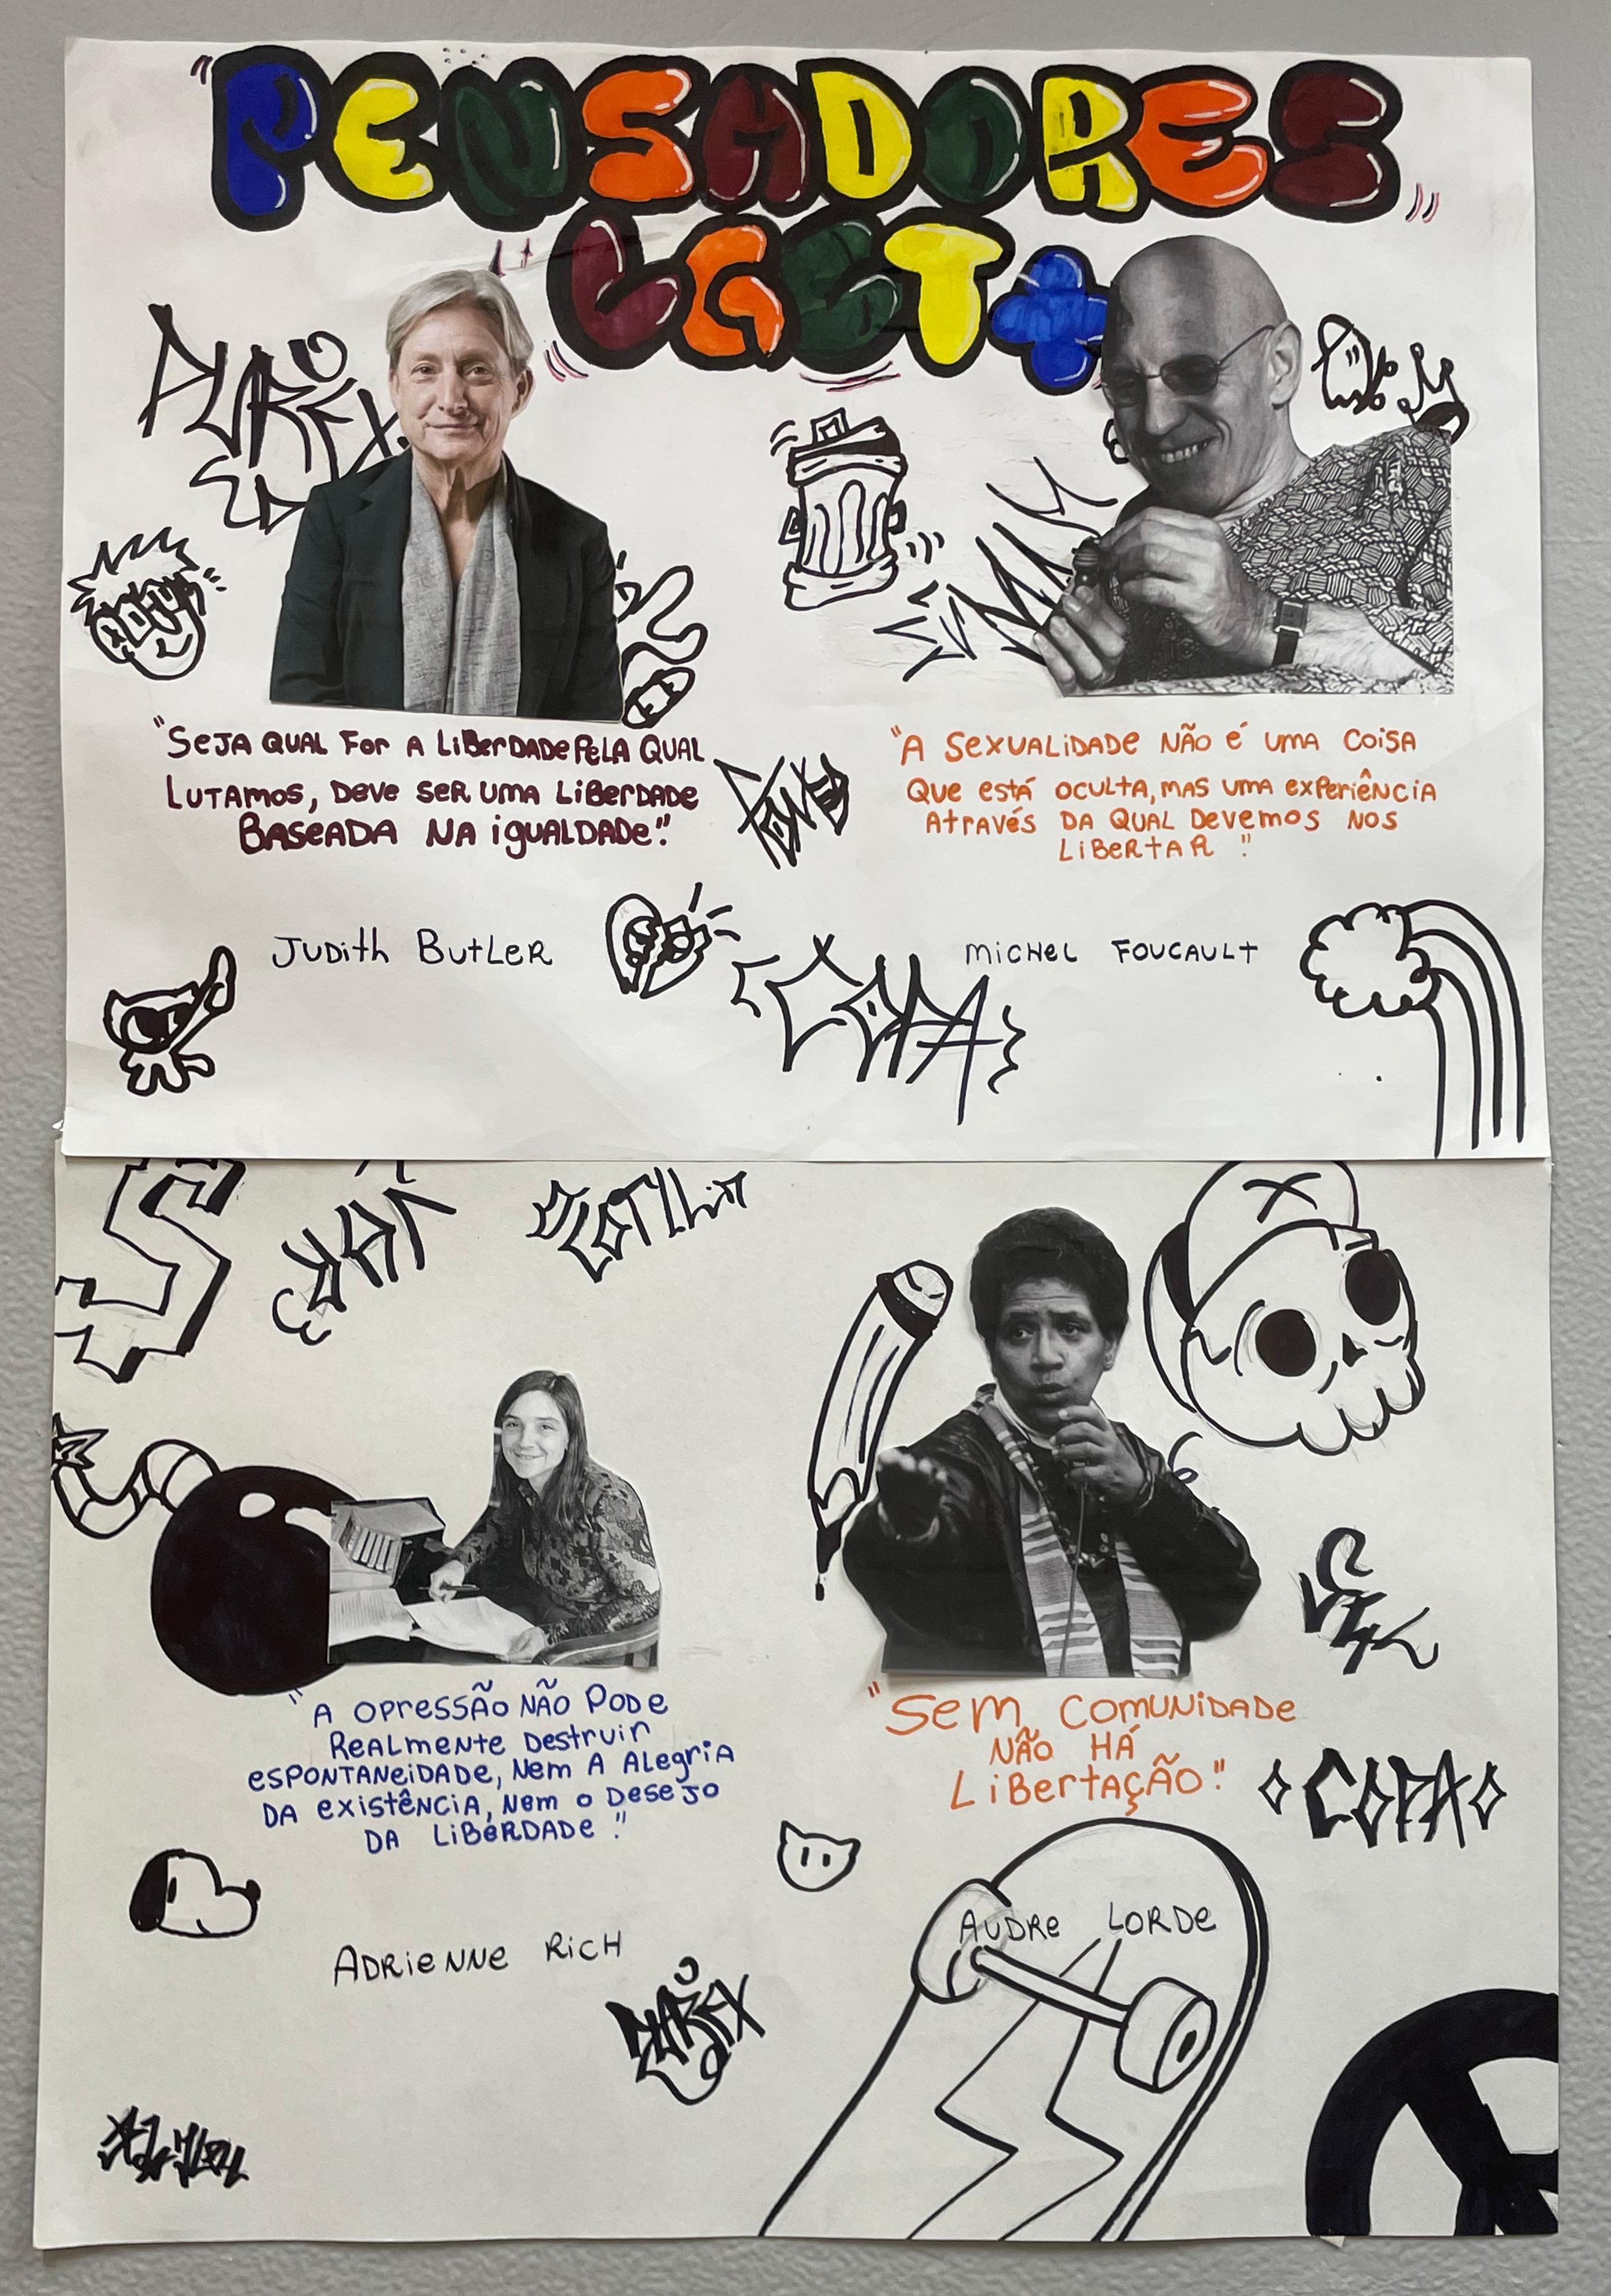 "PENSADORES"
LGBT+
PUREX
"SEJA QUAL FOR A LIBERDADE PELA QUAL
LUTAMOS, DEVE SER UMA LIBERDADE
BASEADA NA IGUALDADE."
JUDITH BUTLER
"A SEXUALIDADE NÃO É UMA COISA
QUE ESTÁ OCULTA, MAS UMA EXPERIÊNCIA
ATRAVÉS DA QUAL DEVEMOS NOS
LIBERTAR"
MICHEL FOUCAULT
COPA
S
"A OPRESSÃO NÃO PODE
REALMENTE DESTRUIR
ESPONTANEIDADE, NEM A ALEGRIA
DA EXISTÊNCIA, NEM O DESEJO
DA LIBERDADE."
ADRIENNE RICH
"SEM COMUNIDADE
NÃO HÁ
LIBERTAÇÃO"
COPA
AUDRE LORDE
PUREX